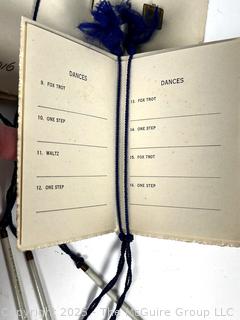 016
DANCES
9. FOX TROT
10. ONE STEP
11. WALTZ
12. ONE STEP
DANCES
13. FOX TROT
14. ONE STEP
15. FOX TROT
16. ONE STEP
Copyright 2025 - The McGuire Group LLC